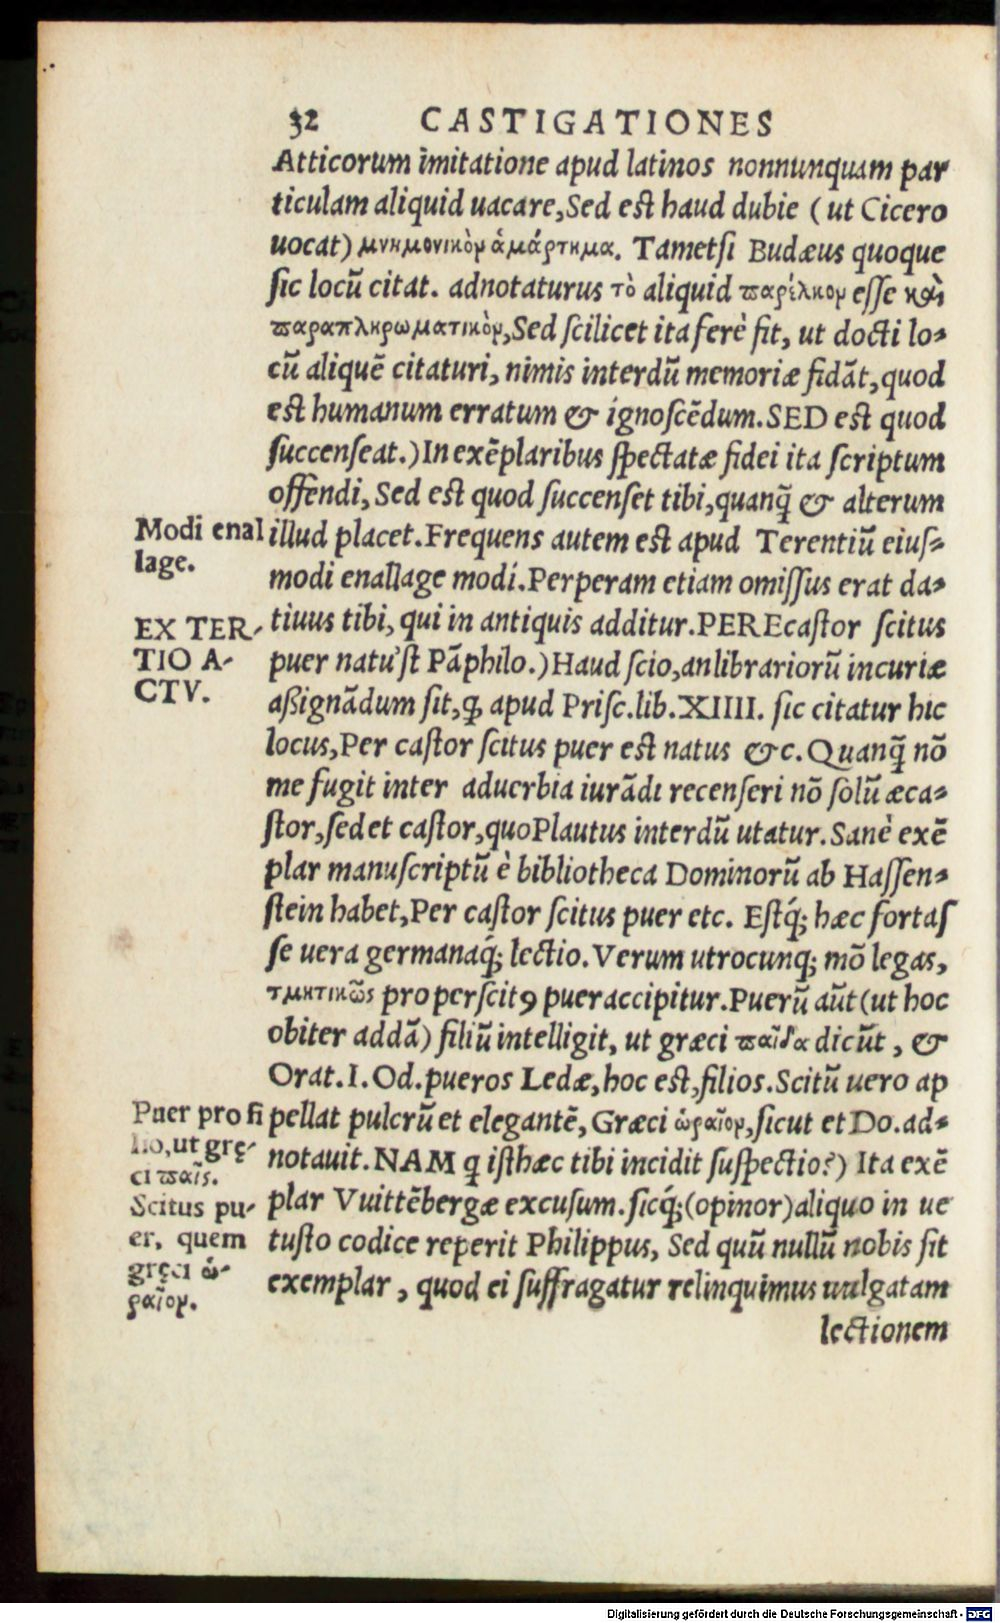 32 CASTIGATIONES
Atticorum imitatione apud latinos nonnunquam par
ticulam aliquid uacare, Sed est haud dubie ( ut Cicero
uocat) μνημονικὸν ἁμάρτημα. Tametsi Budæus quoque
sic locū citat. adnotaturus τὸ aliquid παρέλκον esse καὶ
παραπληρωματικὸν, Sed scilicet ita ferè fit, ut docti lo-
cū aliquē citaturi, nimis interdū memoriæ fidāt, quod
est humanum erratum & ignoscēdum. SED est quod
succenseat.) In exēplaribus spectatæ fidei ita scriptum
offendi, Sed est quod succenset tibi, quanq̄ & alterum
Modi enal
lage.
illud placet. Frequens autem est apud Terentiū eius-
modi enallage modi. Perperam etiam omissus erat da-
EX TER-
TIO A-
CTV.
tiuus tibi, qui in antiquis additur. PEREcastor scitus
puer natu'st Pāphilo.) Haud scio, an librariorū incuriæ
aßignādum sit, ꝙ apud Prisc. lib. XIIII. sic citatur hic
locus, Per castor scitus puer est natus &c. Quanq̄ nō
me fugit inter aduerbia iurādi recenseri nō solū æca-
stor, sed et castor, quo Plautus interdū utatur. Sanè exē
plar manuscriptū è bibliotheca Dominorū ab Hassen-
stein habet, Per castor scitus puer etc. Estq́; hæc fortas
se uera germanaq́; lectio. Verum utrocunq; mō legas,
τμητικῶς pro perscitꝰ puer accipitur. Puerū aūt (ut hoc
obiter addā) filiū intelligit, ut græci παῖδα dicūt, &
Orat. I. Od. pueros Ledæ, hoc est, filios. Scitū uero ap
Puer pro fi
lio, ut grę-
ci παῖς.
Scitus pu-
er, quem
gręci ὡ-
ραῖον.
pellat pulcrū et elegantē, Græci ὡραῖον, sicut et Do. ad-
notauit. NAM ꝙ isthæc tibi incidit suspectio?) Ita exē
plar Vuittēbergæ excusum. sicq́; (opinor) aliquo in ue
tusto codice reperit Philippus, Sed quū nullū nobis sit
exemplar, quod ei suffragatur relinquimus uulgatam
lectionem
Digitalisierung gefördert durch die Deutsche Forschungsgemeinschaft - DFG